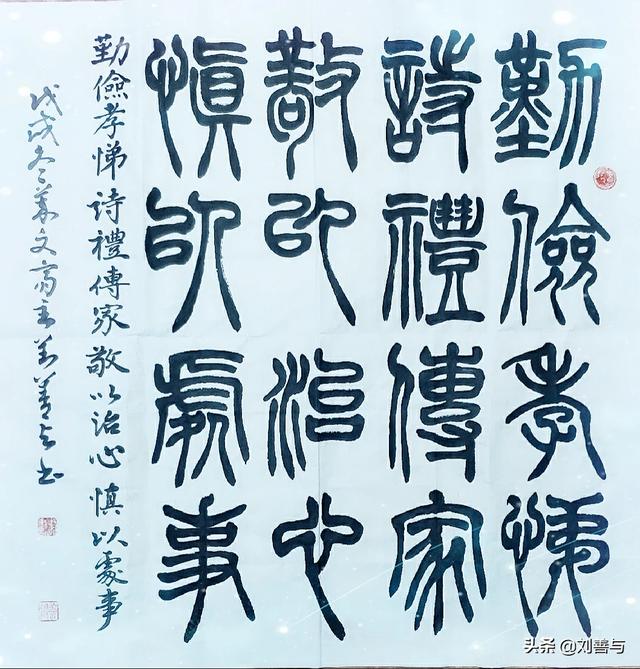 勤儉孝悌
詩禮傳家
敬以治心
慎以處事
勤儉孝悌詩禮傳家敬以治心慎以處事
戊戌冬万文斋主刘善与书
头条 @刘善与